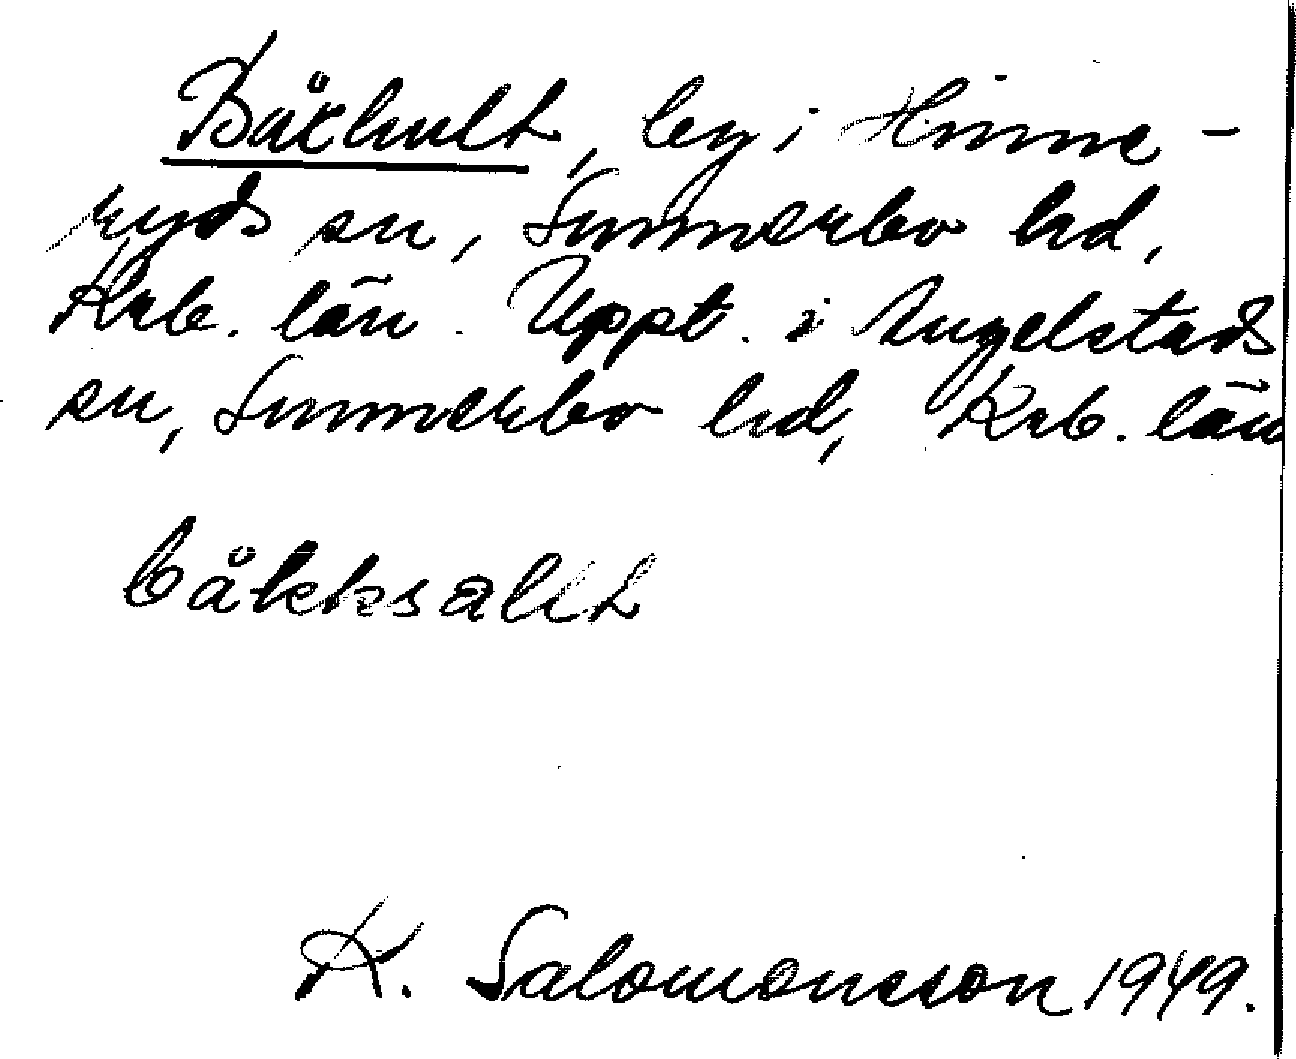 Båxhult, by i Hinne-
ryds sn, Sunnerbo hd,
Krb. län. Uppt. i Angelstads
sn, Sunnerbo hd, Krb. län
båkksallt
K. Salomonsson 1949.